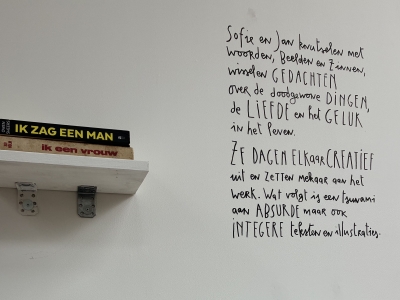 Sofie en Jan knutselen met
woorden, Beelden en Zinnen,
wisselen GEDACHTEN
over de doodgewone DINGEN,
de LIEFDE en het GELUK
in het leven.
ZE DAGEN ELKaar CREATIEF
uit en zetten mekaar aan het
werk. Wat volgt is een tsunami
aan ABSURDE maar ook
INTEGERE teksten en illustraties.
IK ZAG EEN MAN
ik een vrouw